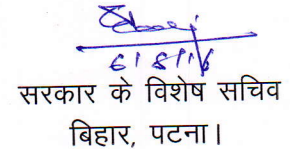 6/8/16
सरकार के विशेष सचिव
बिहार, पटना।